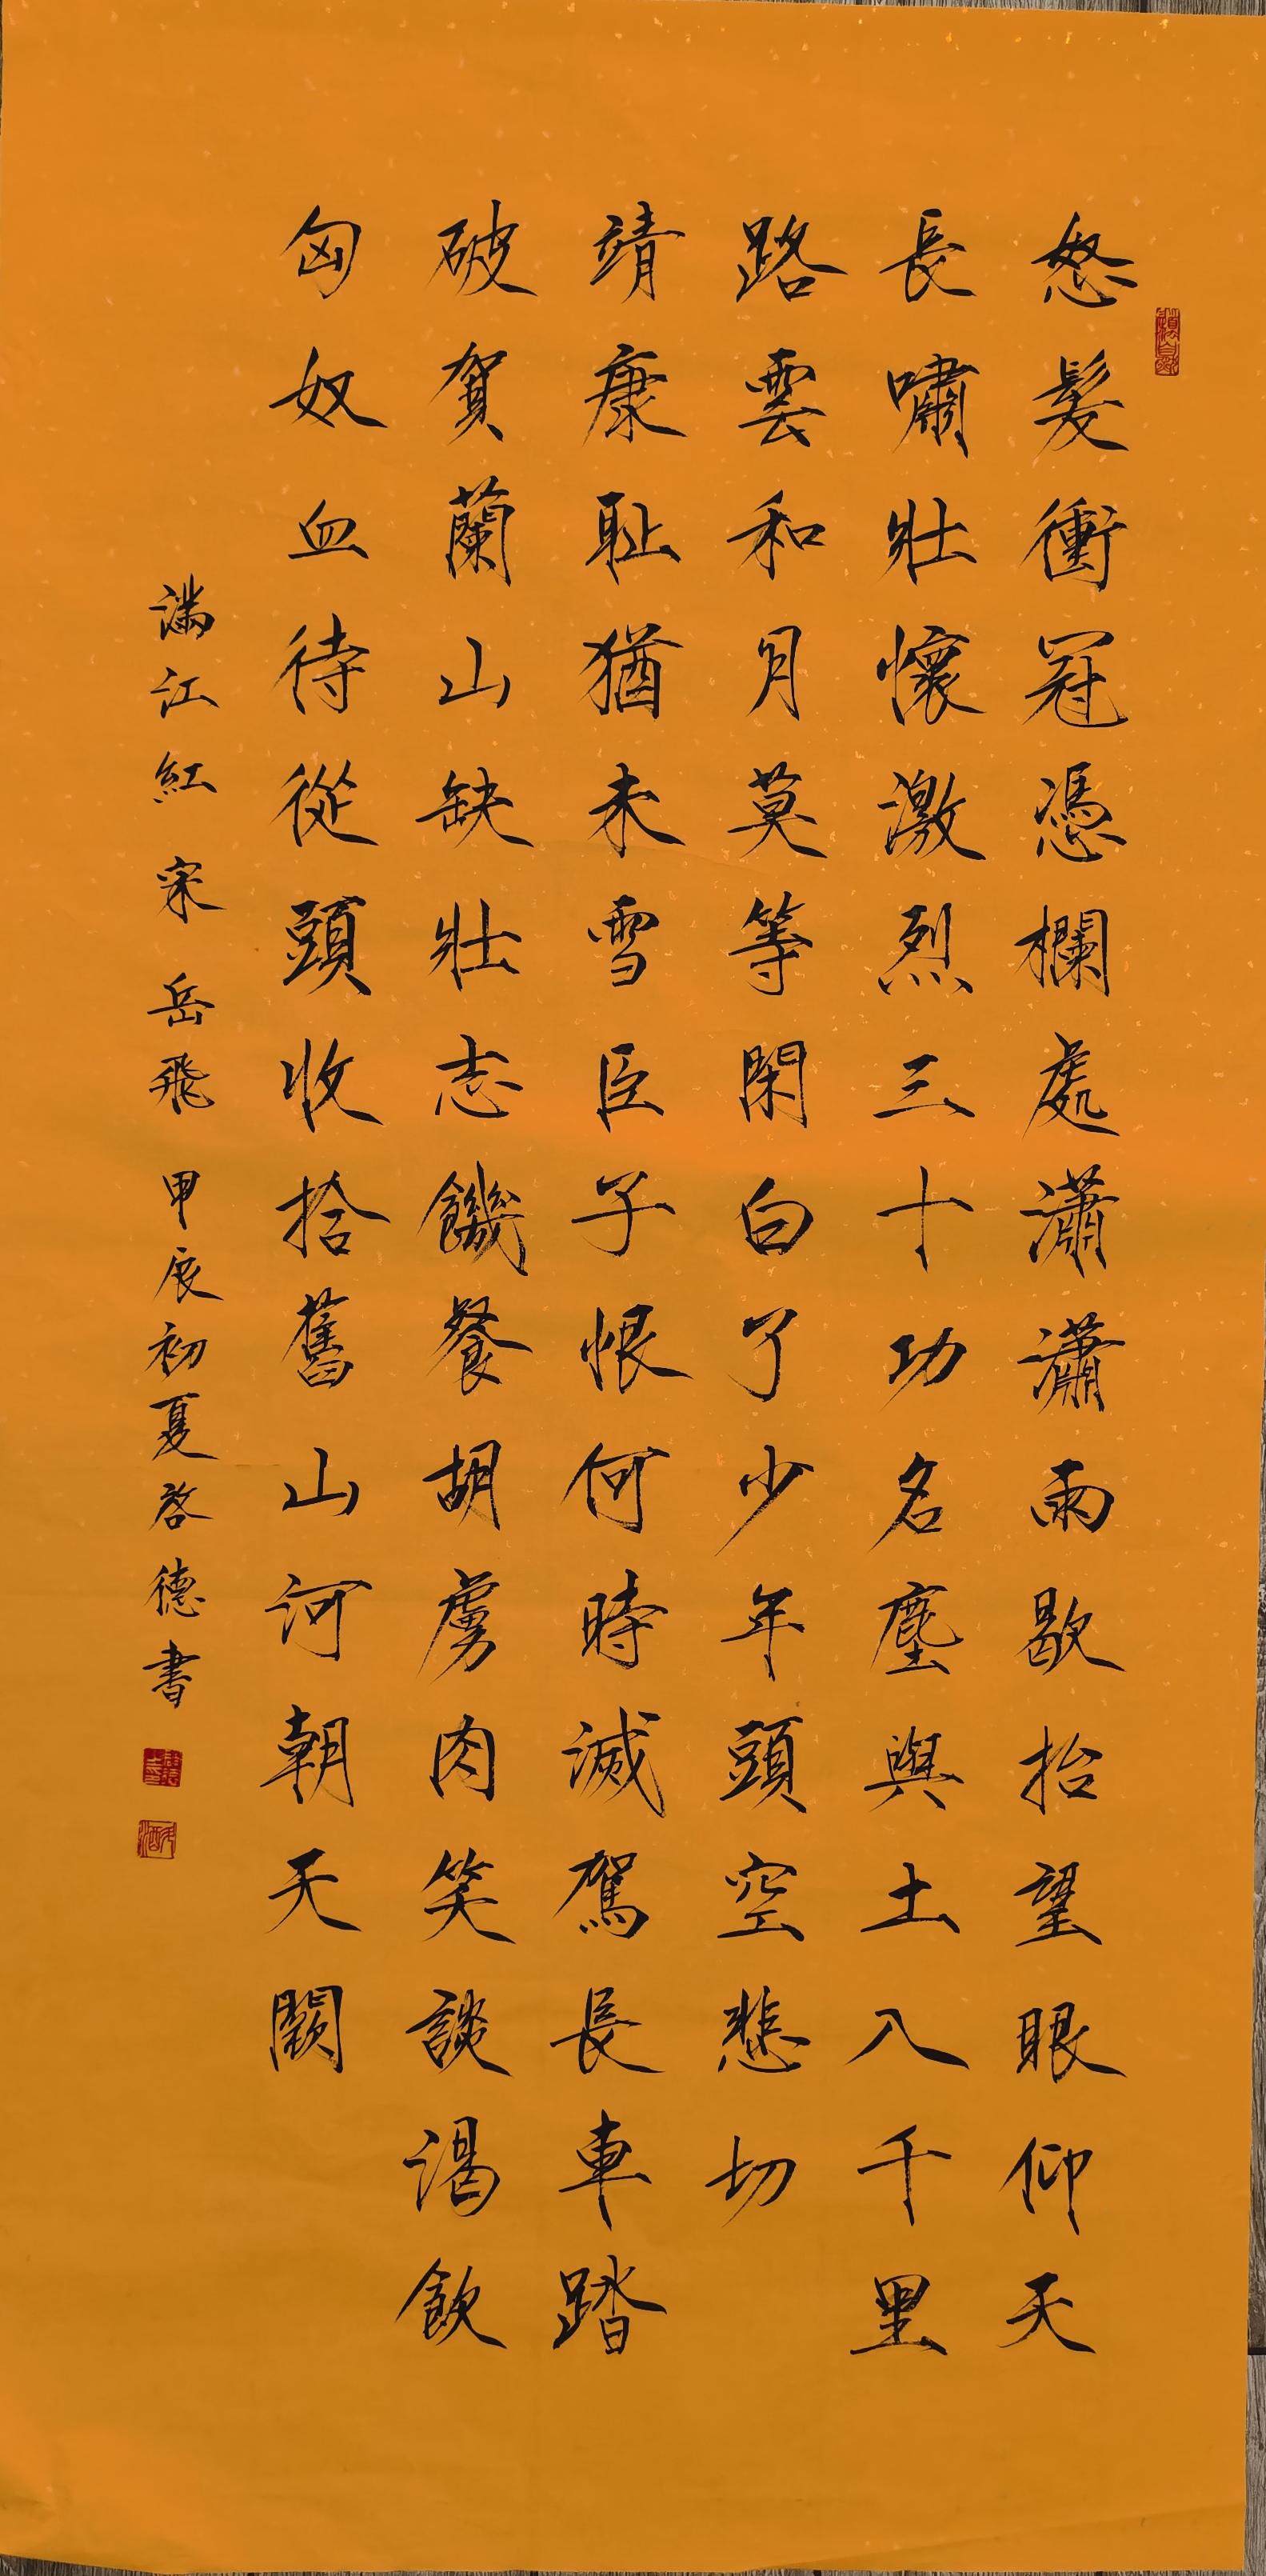 怒髮衝冠憑欄處瀟瀟雨歇抬望眼仰天
長嘯壯懷激烈三十功名塵與土八千里
路雲和月莫等閑白了少年頭空悲切
靖康耻猶未雪臣子恨何時滅駕長車踏
破賀蘭山缺壯志饑餐胡虜肉笑談渴飲
匈奴血待從頭收拾舊山河朝天闕
滿江紅 宋 岳飛 甲辰初夏啓德書